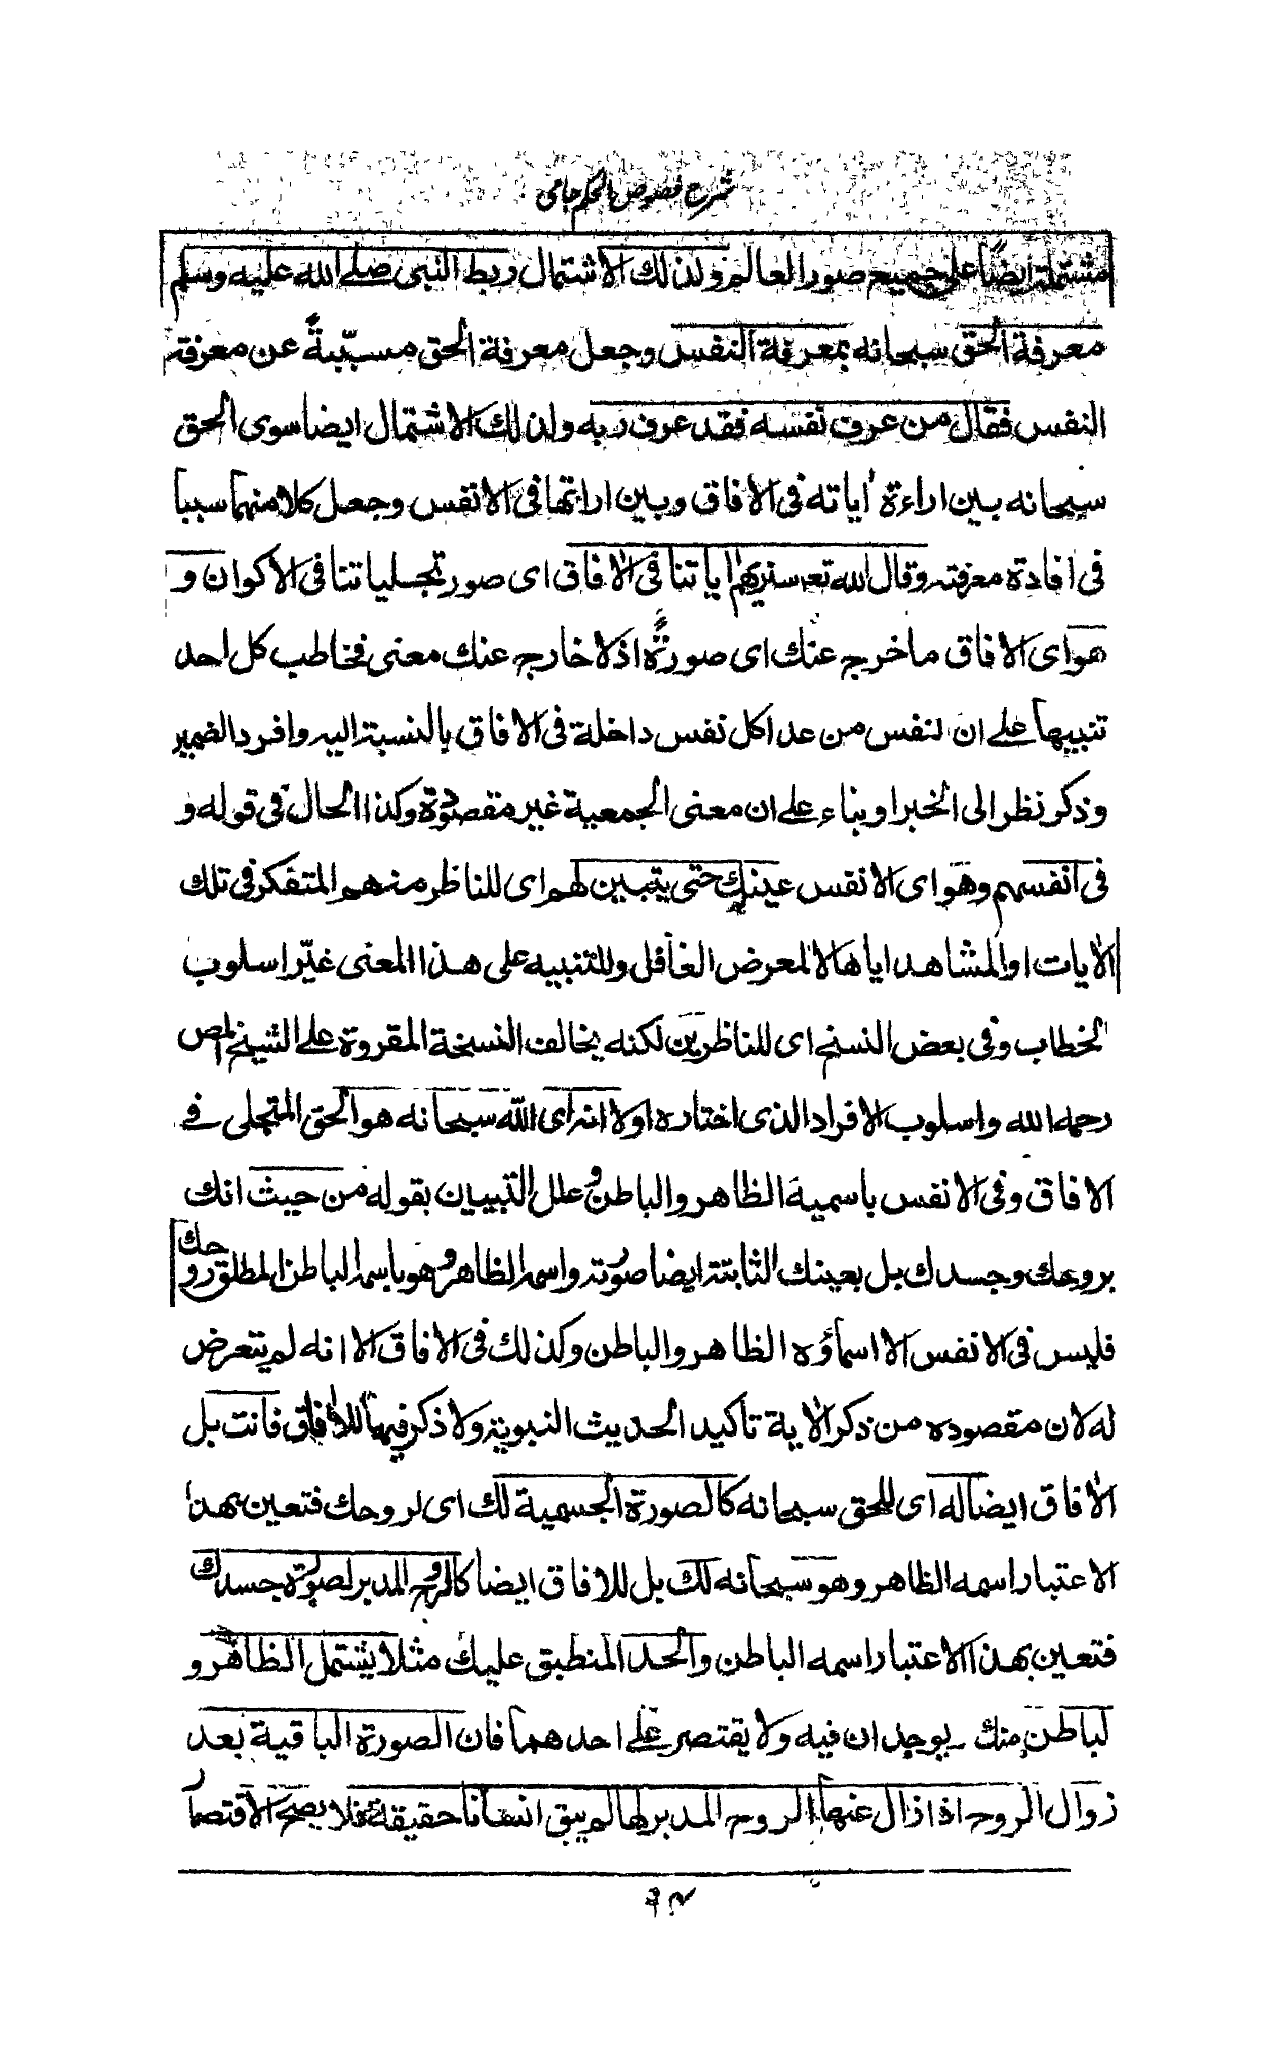 شرح فصوص الحكم جامى
مشتملة ايضاً على جميع صور العالم ولذلك الاشتمال ربط النبى صلے الله عليه وسلم
معرفة الحق سبحانه بمعرفة النفس وجعل معرفة الحق مسبّبيةً عن معرفة
النفس فقال من عرف نفسه فقد عرف ربه ولذلك الاشتمال ايضا سوى الحق
سبحانه بين اراءة اياته فى الافاق وبين اراءتها فى الانفس وجعل كلا منهما سببا
فى افادة معرفته وقال الله تعه سنريهم اياتنا فى الافاق اى صور تجلياتنا فى الاكوان و
هو اى الافاق ما خرج عنك اى صورةً اذ لا خارج عنك معنى فخاطب كل احد
تنبيها علے ان لنفس من عدا كل نفس داخلة فى الافاق بالنسبة اليه وافرد الضمير
وذكر نظرا الى الخبر او بناء علے ان معنى الجمعية غير مقصودة وكذا الحال فى قوله و
فى انفسهم وهو اى الانفس عينك حتى يتبين لهم اى للناظر منهم المتفكر فى تلك
الايات او المشاهد اياها لا المعرض الغافل وللتنبيه على هذا المعنى غيّر اسلوب
الخطاب وفى بعض النسخ اى للناظرين لكنه يخالف النسخة المقروة علے الشيخ المص
رحمه الله واسلوب الافراد الذى اختاره اولا انه اى الله سبحانه هو الحق المتجلى فے
الافاق وفى الانفس باسميه الظاهر والباطن و علل التبيين بقوله من حيث انك
بروحك وجسدك بل بعينك الثابتة ايضا صورته واسمه الظاهر و هو باسمه الباطن المطلق روحك
فليس فى الانفس الا اسماؤه الظاهر والباطن وكذلك فى الافاق الا انه لم يتعرض
له لان مقصوده من ذكر الاية تاكيد الحديث النبوية ولا ذكر فيها للافاق فانت بل
الافاق ايضا له اى للحق سبحانه كالصورة الجسمية لك اى لروحك فتعين بهذا
الاعتبار اسمه الظاهر وهو سبحانه لك بل للافاق ايضا كالروح المدبر لصورة جسدك
فتعين بهذا الاعتبار اسمه الباطن والحد المنطبق عليك مثلا يشتمل الظاهر و
لباطن منك يوجدان فيه ولا يقتصر علے احدهما فان الصورة الباقية بعد
زوال الروح اذا زال عنها الروح المدبر لها لم يبق انسانا حقيقة فلا يصح الاقتصا